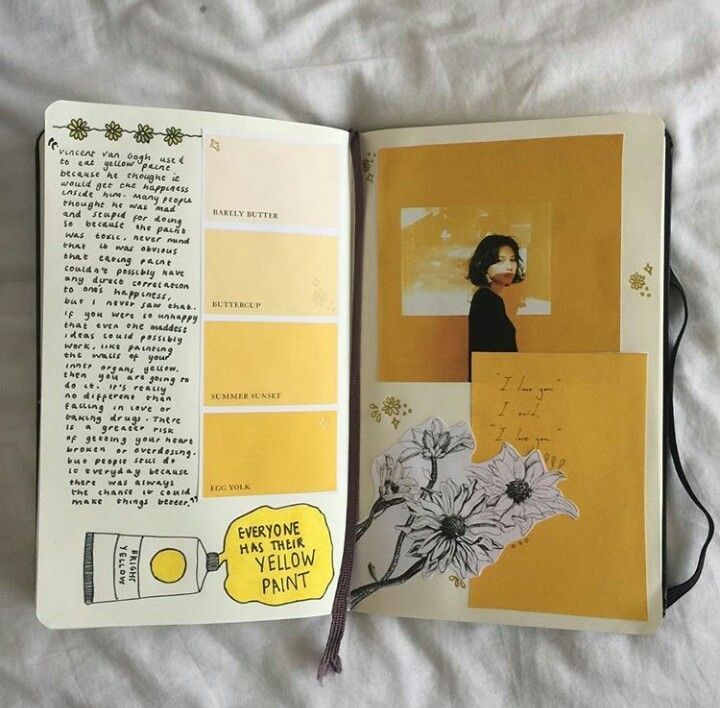 "Vincent van Gogh used
to eat yellow paint
because he thought it
would get the happiness
inside him. Many people
thought he was mad
and stupid for doing
so because the paint
was toxic, never mind
that it was obvious
that eating paint
couldn't possibly have
any direct correlation
to one's happiness,
but I never saw that.
if you were so unhappy
that even the maddest
ideas could possibly
work, like painting
the walls of your
inner organs yellow.
then you are going to
do it. it's really
no different than
falling in love or
taking drugs. There
is a greater risk
of getting your heart
broken or overdosing.
but people still do
it everyday because
there was always
the chance it could
make things better."
BARELY BUTTER
BUTTERCUP
SUMMER SUNSET
EGG YOLK
BRIGHT
YELLOW
EVERYONE
HAS THEIR
YELLOW
PAINT
"I love you"
I said,
"I love you."